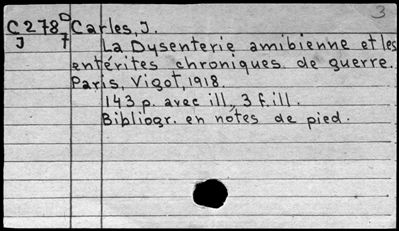 3
C278 D Carles, J.
J 7
La Dysenterie amibienne et les
entérites chroniques de guerre.
Paris, Vigot, 1918.
143 p. avec ill., 3 f. ill.
Bibliogr. en notes de pied.